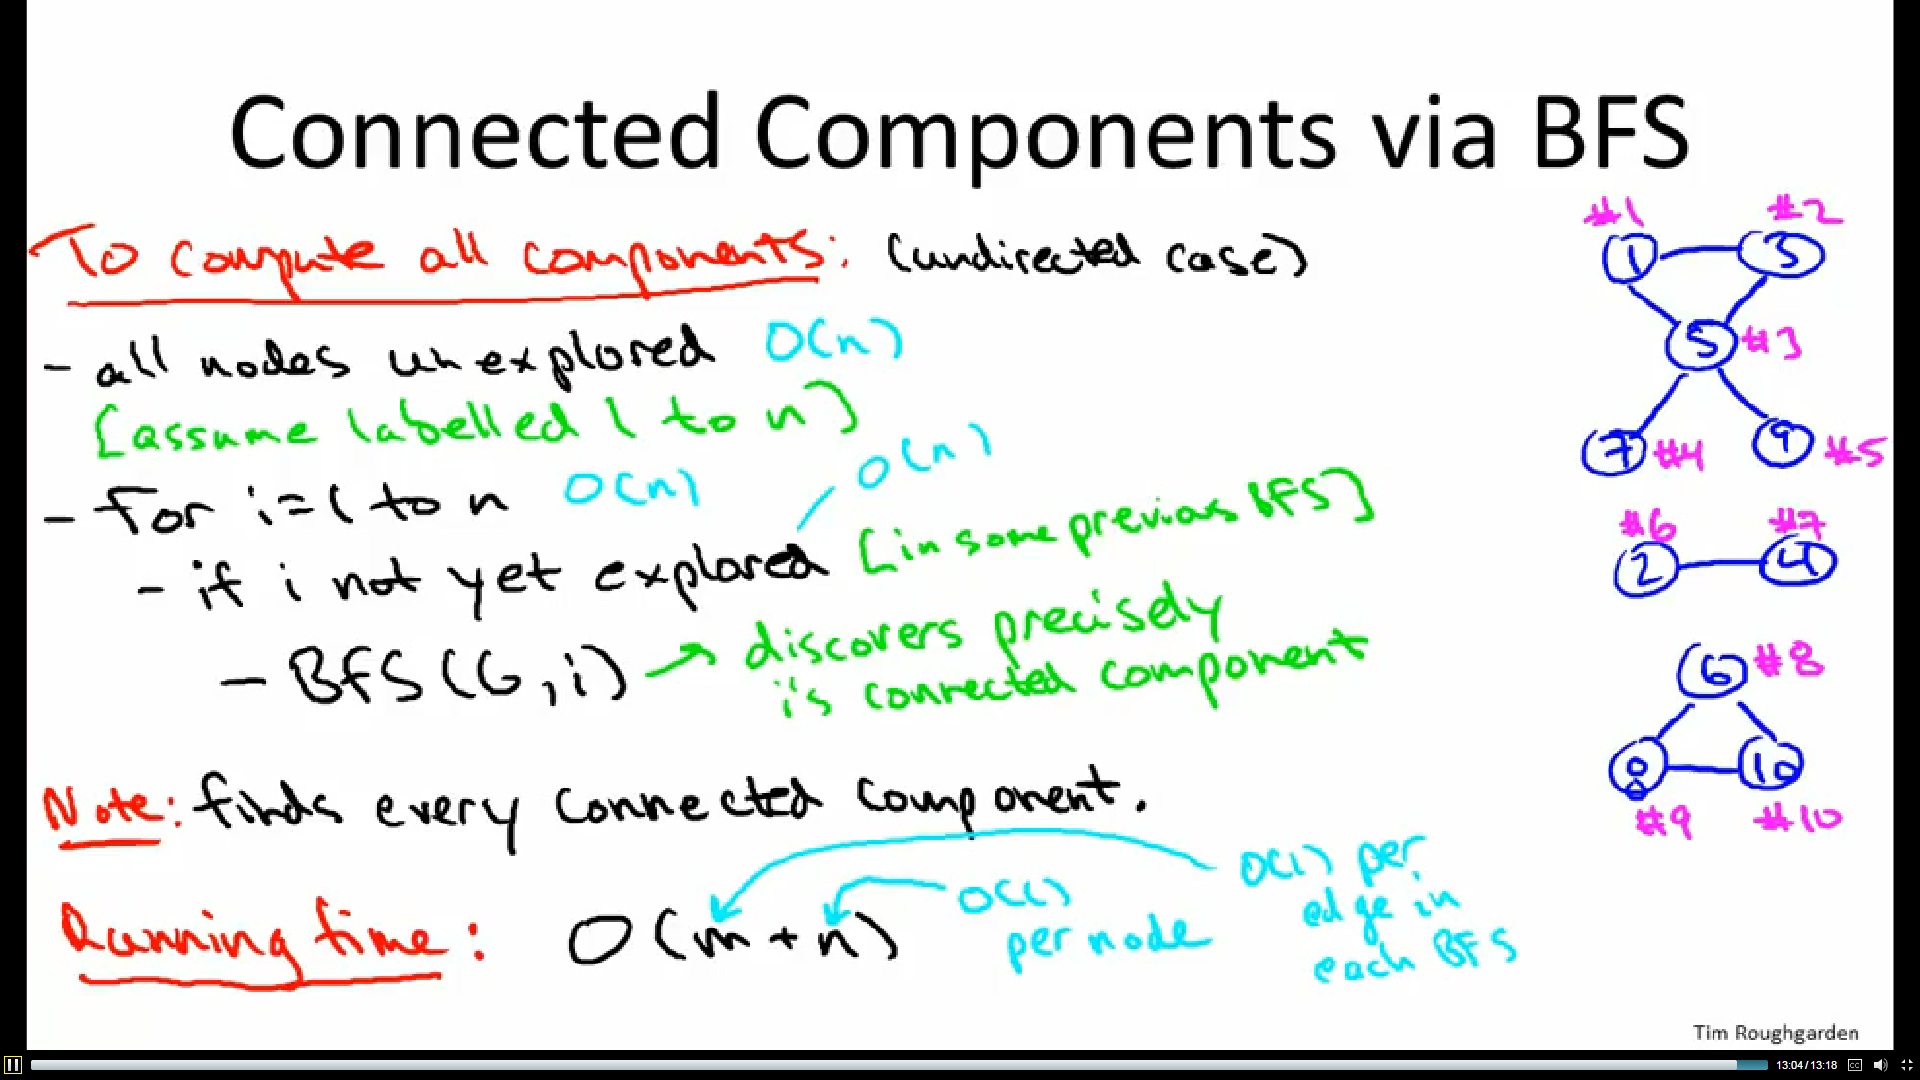 Connected Components via BFS
To compute all components: (undirected case)
- all nodes unexplored O(n)
[assume labelled 1 to n]
- For i=1 to n O(n)
O(n)
- if i not yet explored [in some previous BFS]
- BFS(G,i) → discovers precisely
i's connected component
Note: finds every connected component.
Running time: O(m+n)
O(1)
per node
O(1) per
edge in
each BFS
#1 #2
1 3
5 #3
7 #4 9 #5
#6 #7
2 4
6 #8
8 10
#9 #10
Tim Roughgarden
13:04/13:18 CC